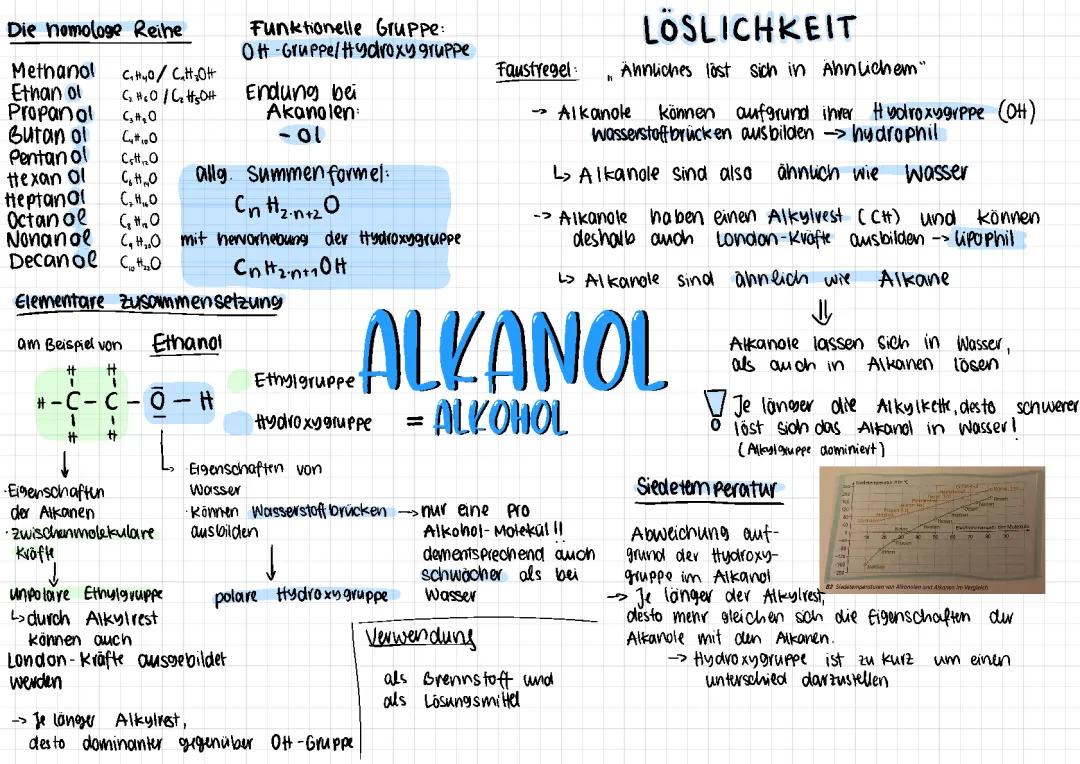 Die homologe Reihe
Methanol C₁H₄O / C₁H₃OH
Ethanol C₂H₆O / C₂H₅OH
Propanol C₃H₈O
Butanol C₄H₁₀O
Pentanol C₅H₁₂O
Hexanol C₆H₁₄O
Heptanol C₇H₁₆O
Octanol C₈H₁₈O
Nonanol C₉H₂₀O
Decanol C₁₀H₂₂O
Funktionelle Gruppe:
OH-Gruppe/Hydroxygruppe
Endung bei
Akanolen:
- ol
allg. Summenformel:
CₙH₂.ₙ₊₂O
mit hervorhebung der Hydroxygruppe
CₙH₂.ₙ₊₁OH
Elementare Zusammensetzung
am Beispiel von Ethanol
H H
H - C - C - O - H
H H
Ethylgruppe
Hydroxygruppe
·Eigenschaften
der Alkanen
·zwischenmolekulare
Kräfte
unpolare Ethylgruppe
↳ durch Alkylrest
können auch
London-Kräfte ausgebildet
werden
-> Je länger Alkylrest,
desto dominanter gegenüber OH-Gruppe
· Eigenschaften von
Wasser
· können Wasserstoffbrücken
ausbilden
polare Hydroxygruppe
→ nur eine pro
Alkohol-Molekül!!
dementsprechend auch
schwächer als bei
Wasser
ALKANOL
= ALKOHOL
Verwendung
als Brennstoff und
als Lösungsmittel
LÖSLICHKEIT
Faustregel: „Ähnliches löst sich in Ähnlichem"
-> Alkanole können aufgrund ihrer Hydroxygrppe (OH)
Wasserstoffbrücken ausbilden -> hydrophil
↳ Alkanole sind also ähnlich wie Wasser
-> Alkanole haben einen Alkylrest (CH) und können
deshalb auch London-Kräfte ausbilden -> lipophil
↳ Alkanole sind ähnlich wie Alkane
⇓
Alkanole lassen sich in Wasser,
als auch in Alkanen lösen
! Je länger die Alkylkette, desto schwerer
löst sich das Alkanol in Wasser!
(Alkylgruppe dominiert)
Siedetemperatur
Abweichung auf-
grund der Hydroxy-
gruppe im Alkanol
-> Je länger der Alkylrest,
desto mehr gleichen sich die Eigenschaften der
Alkanole mit den Alkanen.
-> Hydroxygruppe ist zu kurz um einen
unterschied darzustellen
B2 Siedetemperaturen von Alkanolen und Alkanen im Vergleich